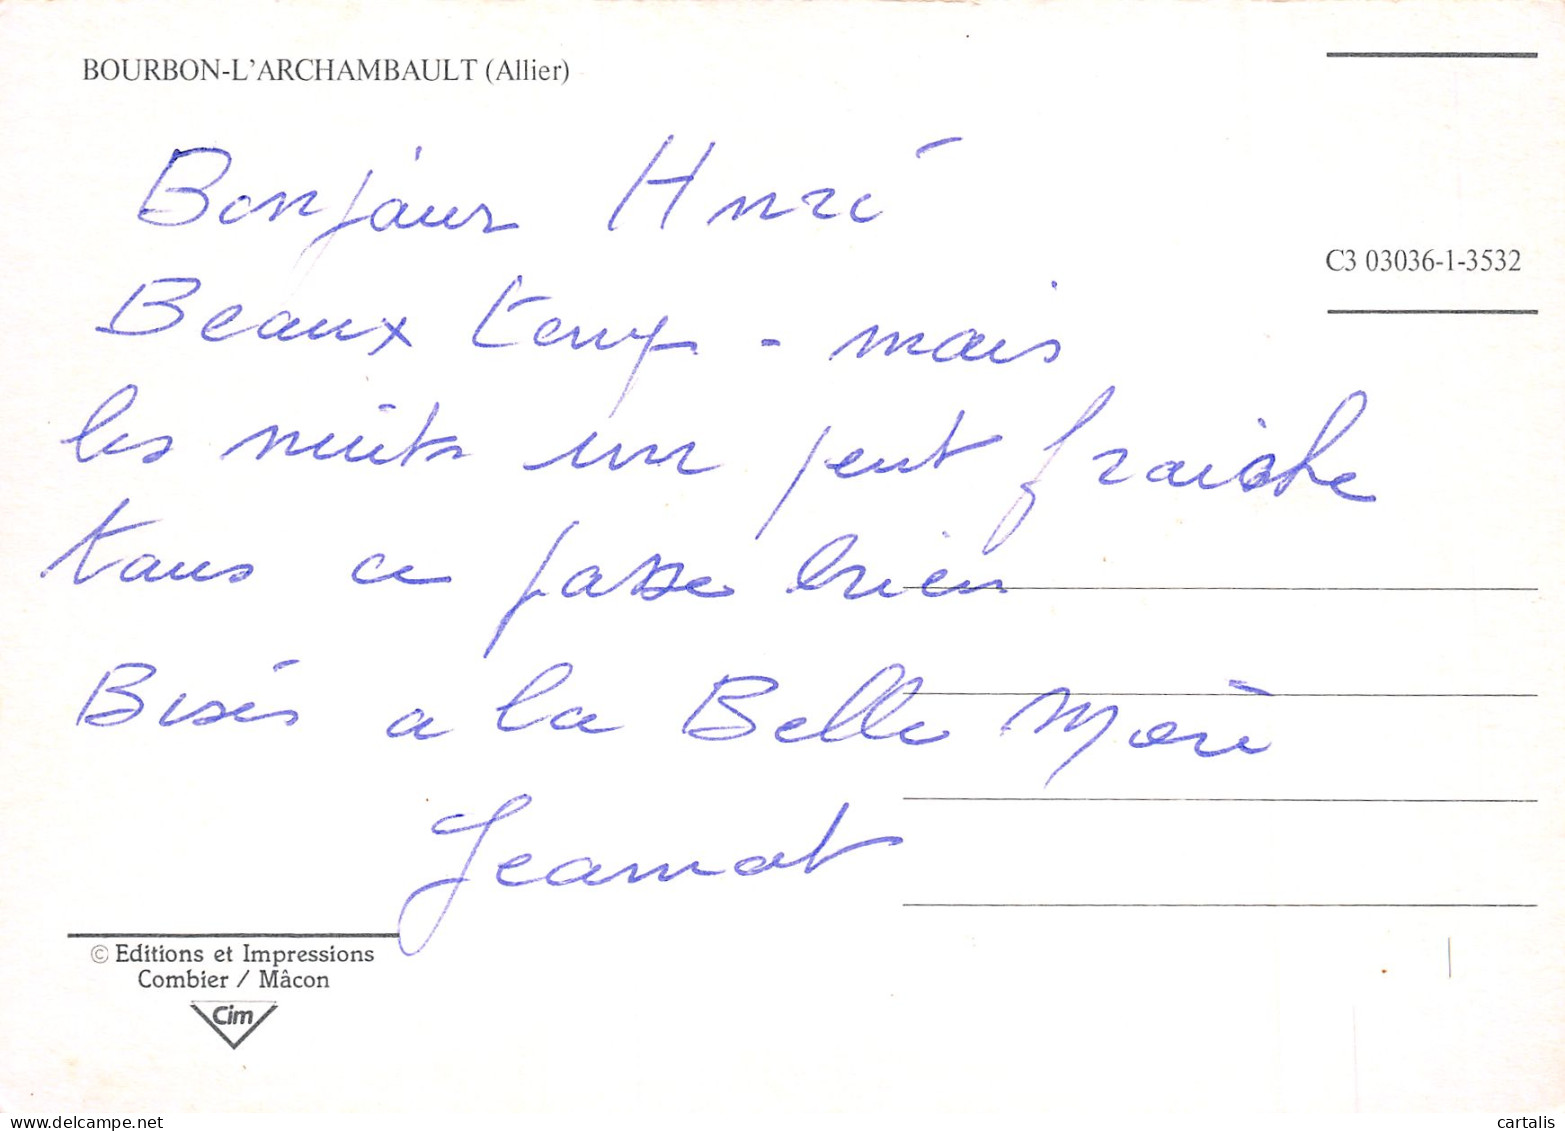 BOURBON-L'ARCHAMBAULT (Allier)
Bonjour Henri
C3 03036-1-3532
Beaux temps - mais
les nuits un peut fraiche
tous ce passe bien
Bises a la Belle Mère
© Editions et Impressions
Combier / Mâcon
Cim
www.delcampe.net
cartalis